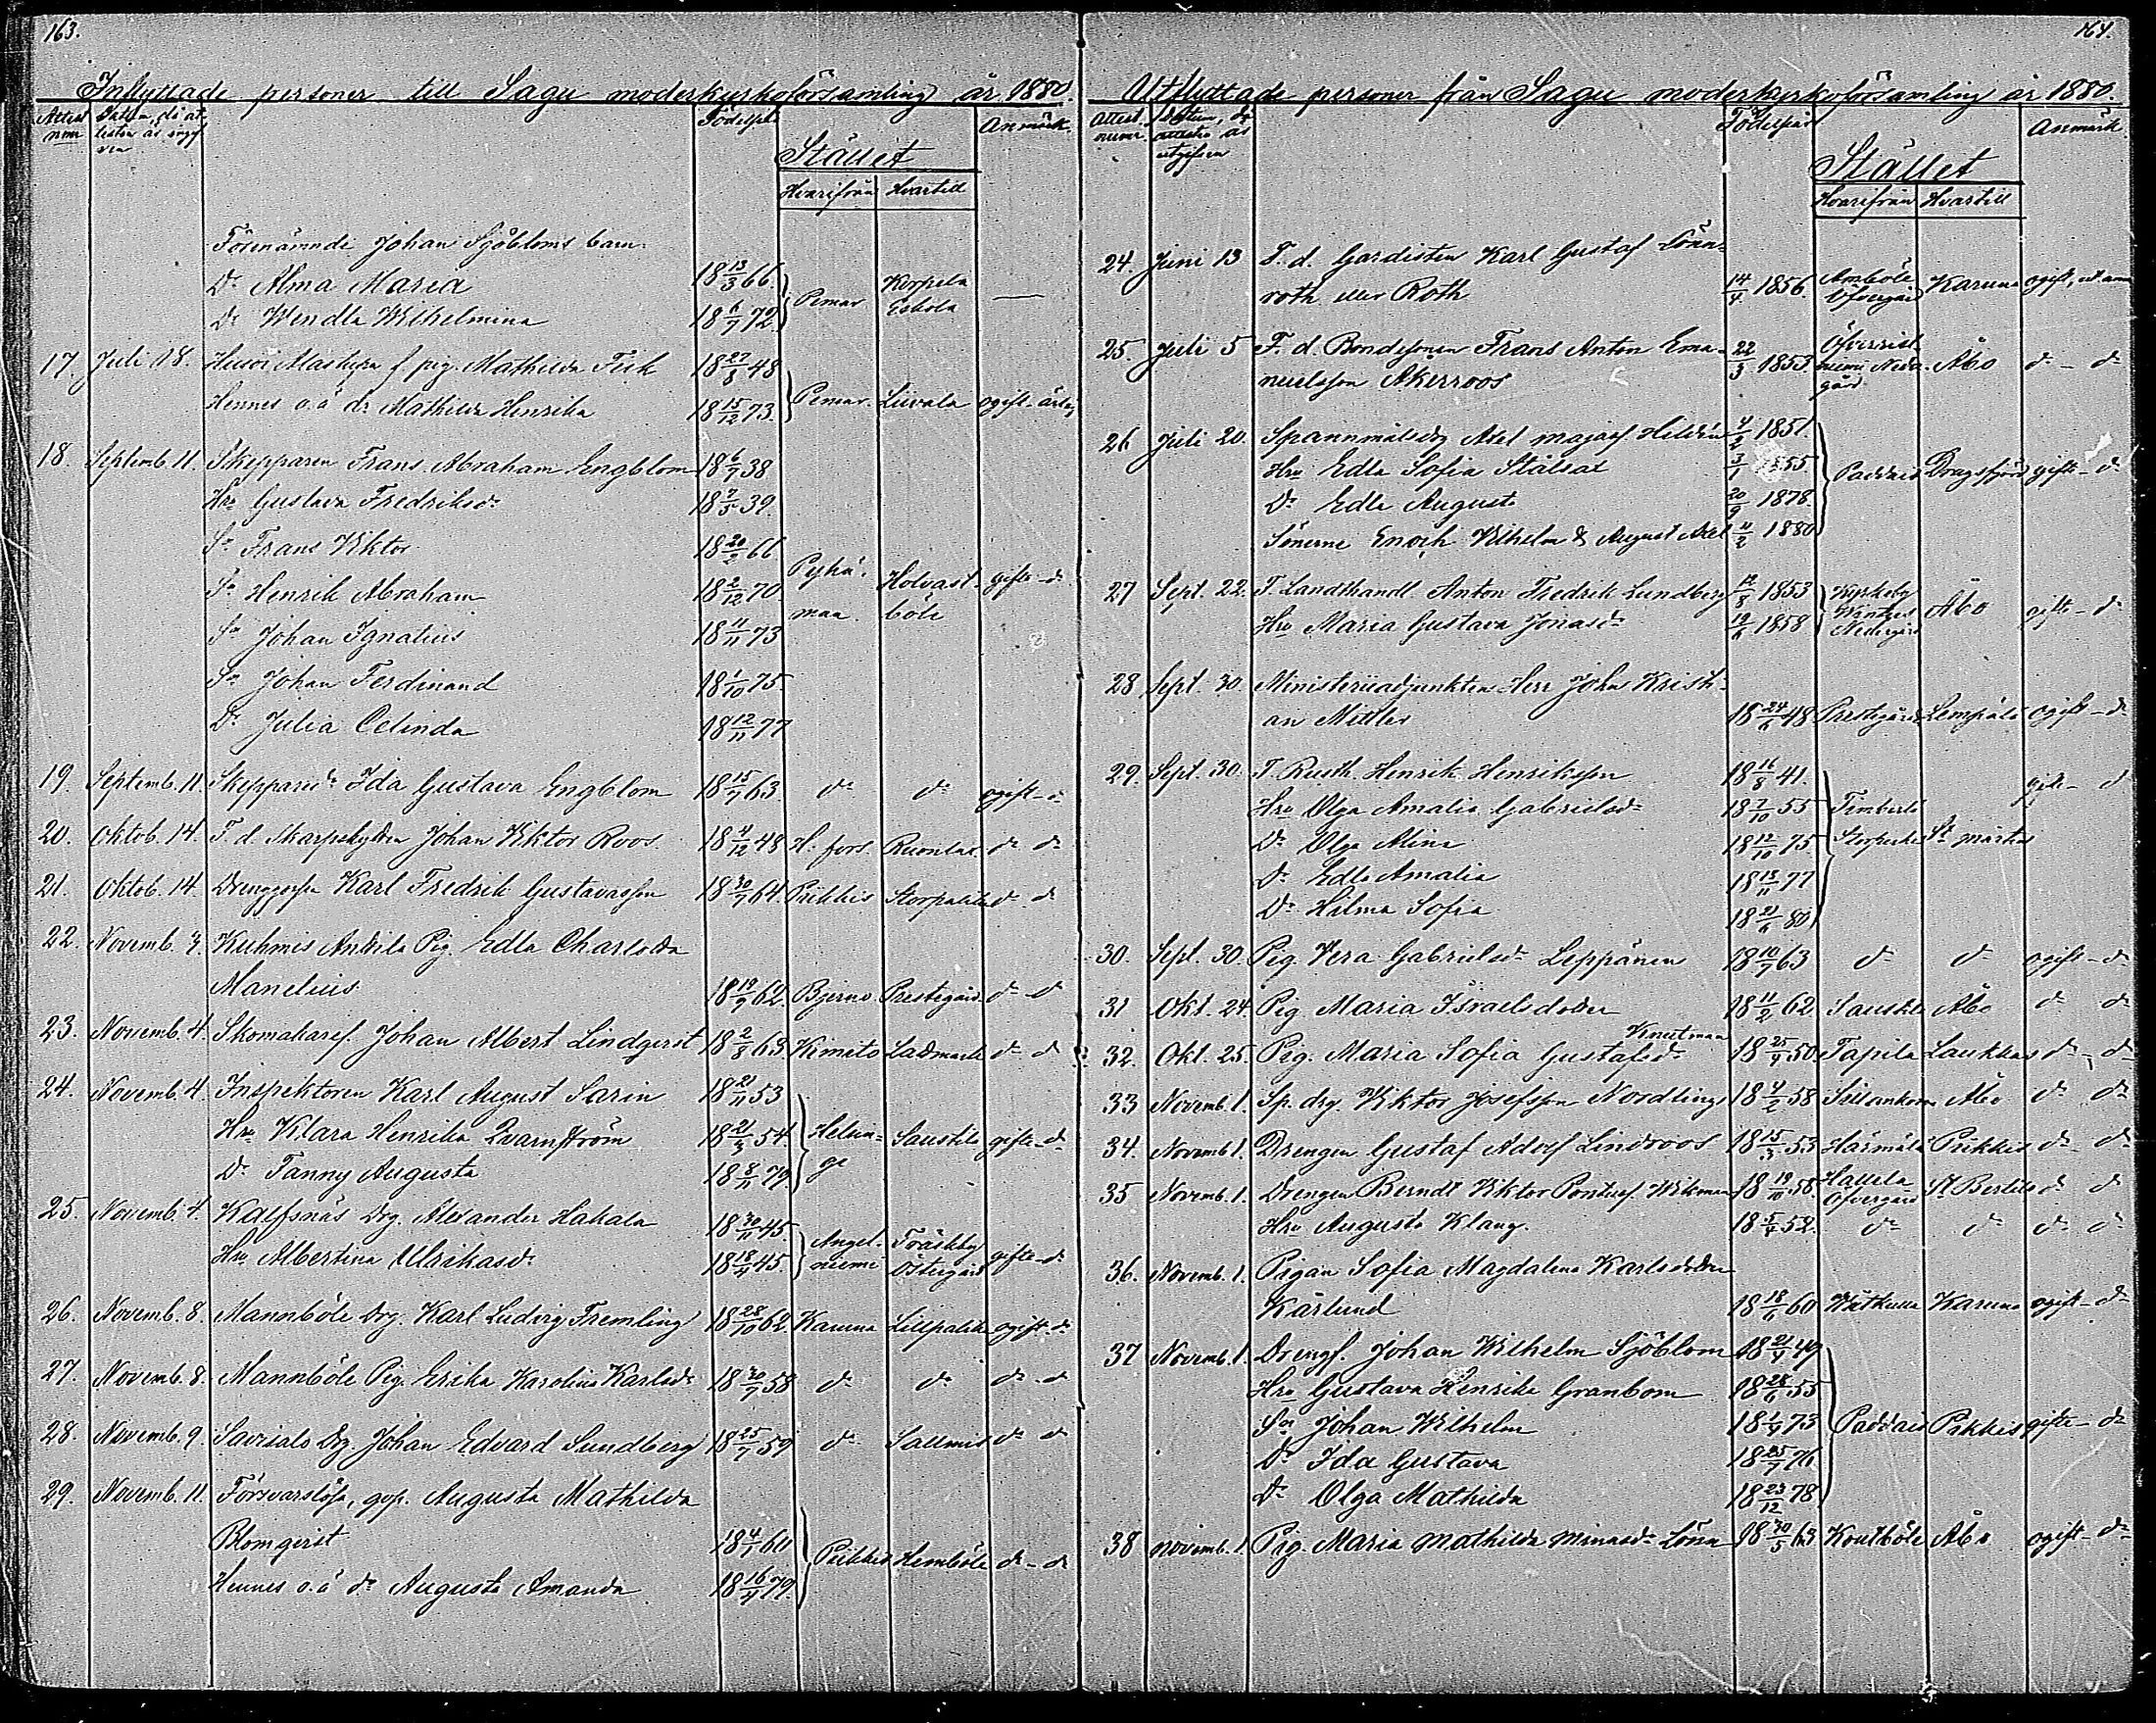 163.
Inflyttade personer till Sagu moderkyrkoförsamling år 1880.
Attest num
Datum, då attesten är ingifven
Födelseår
Stället
Hvarifrån Hvartill
Anmärk.
Förenämnde Johan Sjöbloms barn:
Dr Alma Maria 18 13/3 66. Pemar Korpela Eskola —
Dr Wendla Wilhelmina 18 6/7 72.
17. Juli 18. f. pig. Mathilda Fisk 18 27/8 48 Pemar. Liuvala ogift
Hennes o.ä dr Mathilda Henrika 18 15/12 73.
18. Septemb. 11. Skepparen Frans Abraham Engblom 18 6/7 38
Hru Gustava Fredriksdr 18 7/5 39.
Sn Frans Viktor 18 20/2 66
Sn Henrik Abraham 18 2/12 70. Pyhämaa Holvastböle gifte - do
Sn Johan Ignatius 18 11/11 73
Sn Johan Ferdinand 18 1/10 75.
Dr Julia Celinda 18 12/11 77
19. Septemb. 11. Skeppared. Ida Gustava Engblom 18 15/7 63. do do ogift - do
20. Oktob. 14. F. d. Skarpskytten Johan Viktor Roos 18 4/12 48 H. fors. do do
21. Oktob. 14. Karl Fredrik Gustavasson 18 30/7 64. Piikkis Storpaltila do do
22. Novemb. 3. Kuhmis Anttila Pig. Edla Charlotta
Manelius 18 19/9 62. Bjerno Prestegård. do do
23. Novemb. 4. Skomakaref. Johan Albert Lindqvist 18 2/8 63 Kimito do do
24. Novemb. 4. Inspektoren Karl August Sarin 18 21/11 53
Hru Klara Henrika Qvarnström 18 21/3 54. Helsinge Saustila gifte - do
Dr Fanny Augusta 18 8/11 79.
25. Novemb. 4. Kalfsnäs Drg. Alexander Hakala 18 30/11 45. Angelniemi Träskby Östergård gifte - do
Hru Albertina Ulrikasdr 18 18/4 45.
26. Novemb. 8. Mannböle Drg. Karl Ludvig Fremling 18 28/10 62. Karuna Lillpaltila ogift - do
27. Novemb. 8. Mannböle Pig. Erika Karolina Karlsdr 18 30/7 58 do do do - do
28. Novemb. 9. Savisalo Drg. Johan Edvard Sundberg 18 25/7 59 do Sallmis do do
29. Novemb. 11. Försvarslösa, qvp. Augusta Mathilda
Blomqvist 18 4/7 60 Piikkis Hemböle do - do
Hennes o.ä dr Augusta Amanda 18 16/4 79.
164.
Utflyttade personer från Sagu moderkyrkoförsamling år 1880.
Attest numr.
Datum, då attesten är utgifven
Födelseår
Stället
Hvarifrån Hvartill
Anmärk.
24. Juni 13 F. d. Gardisten Karl Gustaf Lönn-
roth eller Roth 14/4 1856. Amböle Öfvergård Karuna ogift,
25. Juli 5 F. d. Bondesonen Frans Anton Ema-
nuelsson Åkerroos 22/3 1853. Åbo do - do
26 Juli 20. Spannmålsdrg Axel 4/2 1851.
Hru Edla Sofia Stålsax 3/1 1855. Paddais Dragsfjärd gifte - do
Dr Edla Augusta 20/9 1878.
Sönerne Enoch Vilhelm & August Axel 11/2 1880
27 Sept. 22. F. Landthandl. Anton Fredrik Lundberg 12/8 1853 Kyrkoby Nedergård Åbo gifte - do
Hru Maria Gustava Jonasdr 19/6 1858
28 Sept. 30. Ministeriiadjunkten Herr John Kristi-
an Mittler 18 24/6 48 Prestegård Lempälä ogift - do
29. Sept. 30. F. Rusth. Henrik Henriksson 18 16/8 41. gifte - do
Hru Olga Amalia Gabrielsdr 18 7/10 55 Timberla
Dr Olga Alina 18 12/10 75 St. Mårtens
Dr Edla Amalia 18 13/11 77
Dr Hilma Sofia 18 21/6 80
30. Sept. 30. Pig. Vera Gabrielsdr Leppänen 18 10/7 63 do do ogift - do
31 Okt. 24. Pig. Maria Israelsdotter 18 11/2 62 Saustila Åbo do do
32. Okt. 25. Pig. Maria Sofia Gustafsdr Knutman 18 25/9 50 Tapila Laukkas do - do
33 Novemb. 1. Sp. drg. Viktor Josefsson Nordling 18 4/2 58 Åbo do do
34. Novemb 1. Drengen Gustaf Adolf Lindroos 18 15/3 53 Härmälä Piikkis do - do
35 Novemb. 1. Drengen Berndt Viktor Pontusf. Wikman 18 19/10 58. Hallela Öfvergård St. Bertils do do
Hru Augusta Klang. 18 5/4 52. do do do do
36. Novemb. 1. Pigan Sofia Magdalena Karlsdotter
Kärlund 18 18/11 60 Karuna ogift - do
37 Novemb. 1. Drengf. Johan Wilhelm Sjöblom 18 21/9 49
Hru Gustava Henrika Granbom 18 28/6 55
Sn Johan Wilhelm 18 1/9 73 Paddais Pikkis gifte - do
Dr Ida Gustava 18 25/7 76
Dr Olga Mathilda 18 23/12 78
38 Novemb. 1. Pig. Maria Mathilda Minasdr Lönn 18 30/5 63 Koutböle Åbo ogift - do